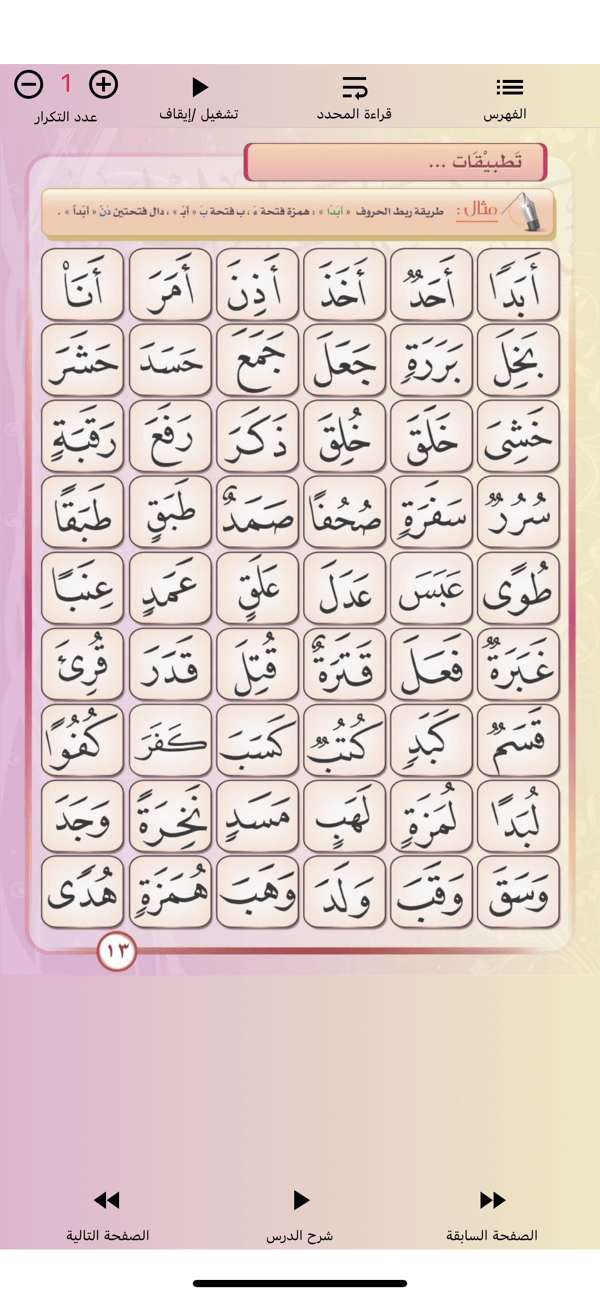 1
عدد التكرار
تشغيل /إيقاف
قراءة المحدد
الفهرس
تَطبِيْقَات ...
مثال : طريقة ربط الحروف « أَبَدًا » : همزة فتحة ءَ ، ب فتحة بَ « أَبَـ » ، دال فتحتين دَنْ « أَبَداً » .
أَبَدًا أَحَدٌ أَخَذَ أَذِنَ أَمَرَ أَنَا۠
بَخِلَ بَرَرَةٍ جَعَلَ جَمَعَ حَسَدَ حَشَرَ
خَشِىَ خَلَقَ خُلِقَ ذَكَرَ رَفَعَ رَقَبَةٍ
سُرُرٌ سَفَرَةٍ صُحُفًا صَمَدٌ طَبَقٍ طَبَقًا
طُوًى عَبَسَ عَدَلَ عَلَقٍ عَمَدٍ عِنَبًا
غَبَرَةٌ فَعَلَ قَتَرَةٌ قُتِلَ قَدَرَ قُرِئَ
قَسَمٌ كَبَدٍ كُتُبٌ كَسَبَ كَفَرَ كُفُوًا
لُبَدًا لُمَزَةٍ لَهَبٍ مَسَدٍ نَخِرَةً وَجَدَ
وَسَقَ وَقَبَ وَلَدَ وَهَبَ هُمَزَةٍ هُدًى
١٣
الصفحة السابقة
شرح الدرس
الصفحة التالية